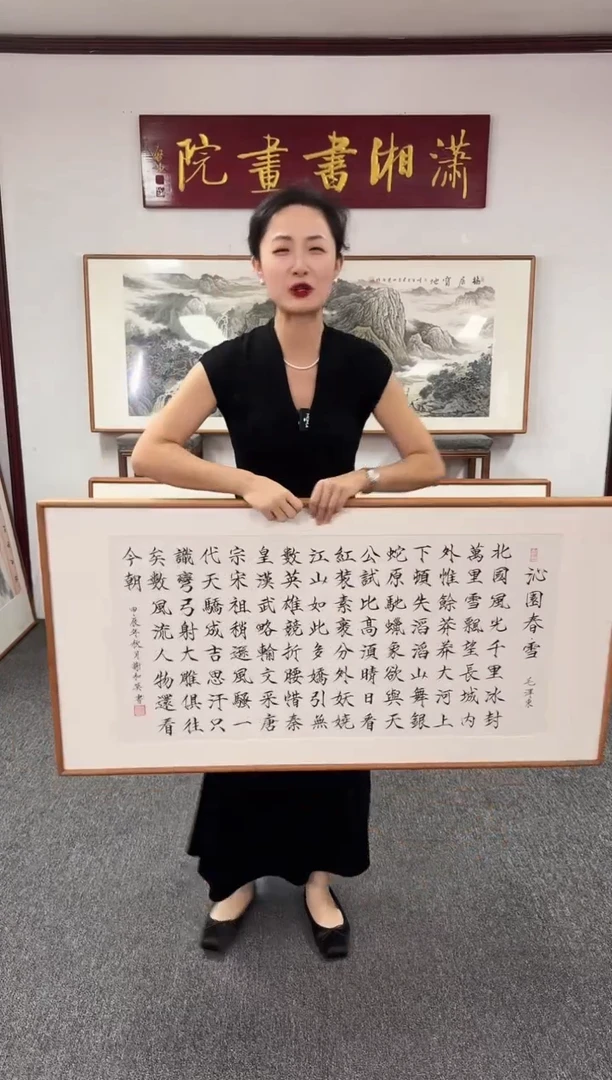 瀟湘書畫院
沁園春雪
毛澤東
北國風光千里冰封
萬里雪飄望長城內
外惟餘莽莽大河上
下頓失滔滔山舞銀
蛇原馳蠟象欲與天
公試比高須晴日看
紅裝素裹分外妖嬈
江山如此多嬌引無
數英雄競折腰惜秦
皇漢武略輸文采唐
宗宋祖稍遜風騷一
代天驕成吉思汗只
識彎弓射大雕俱往
矣數風流人物還看
今朝
甲辰年秋月